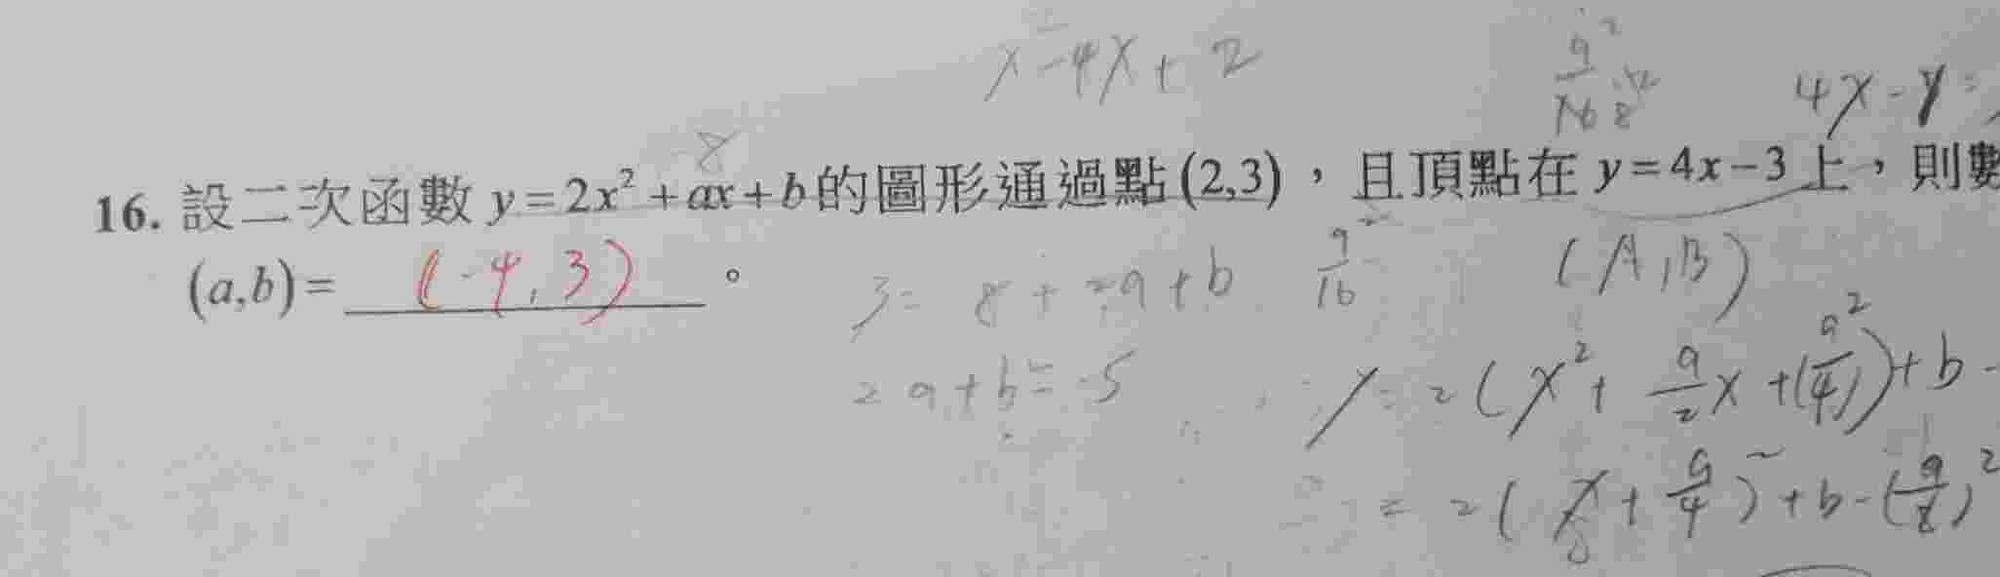 x²-4x+2
4x-y=
-8
16. 設二次函數 y=2x²+ax+b 的圖形通過點(2,3)，且頂點在 y=4x-3 上，則數
(a,b)= (-4,3) 。
3= 8+2a+b
(A,B)
2a+b=-5
y=2(x²+a/2x+(a²/4))+b-
=2(x+a/4)²+b-